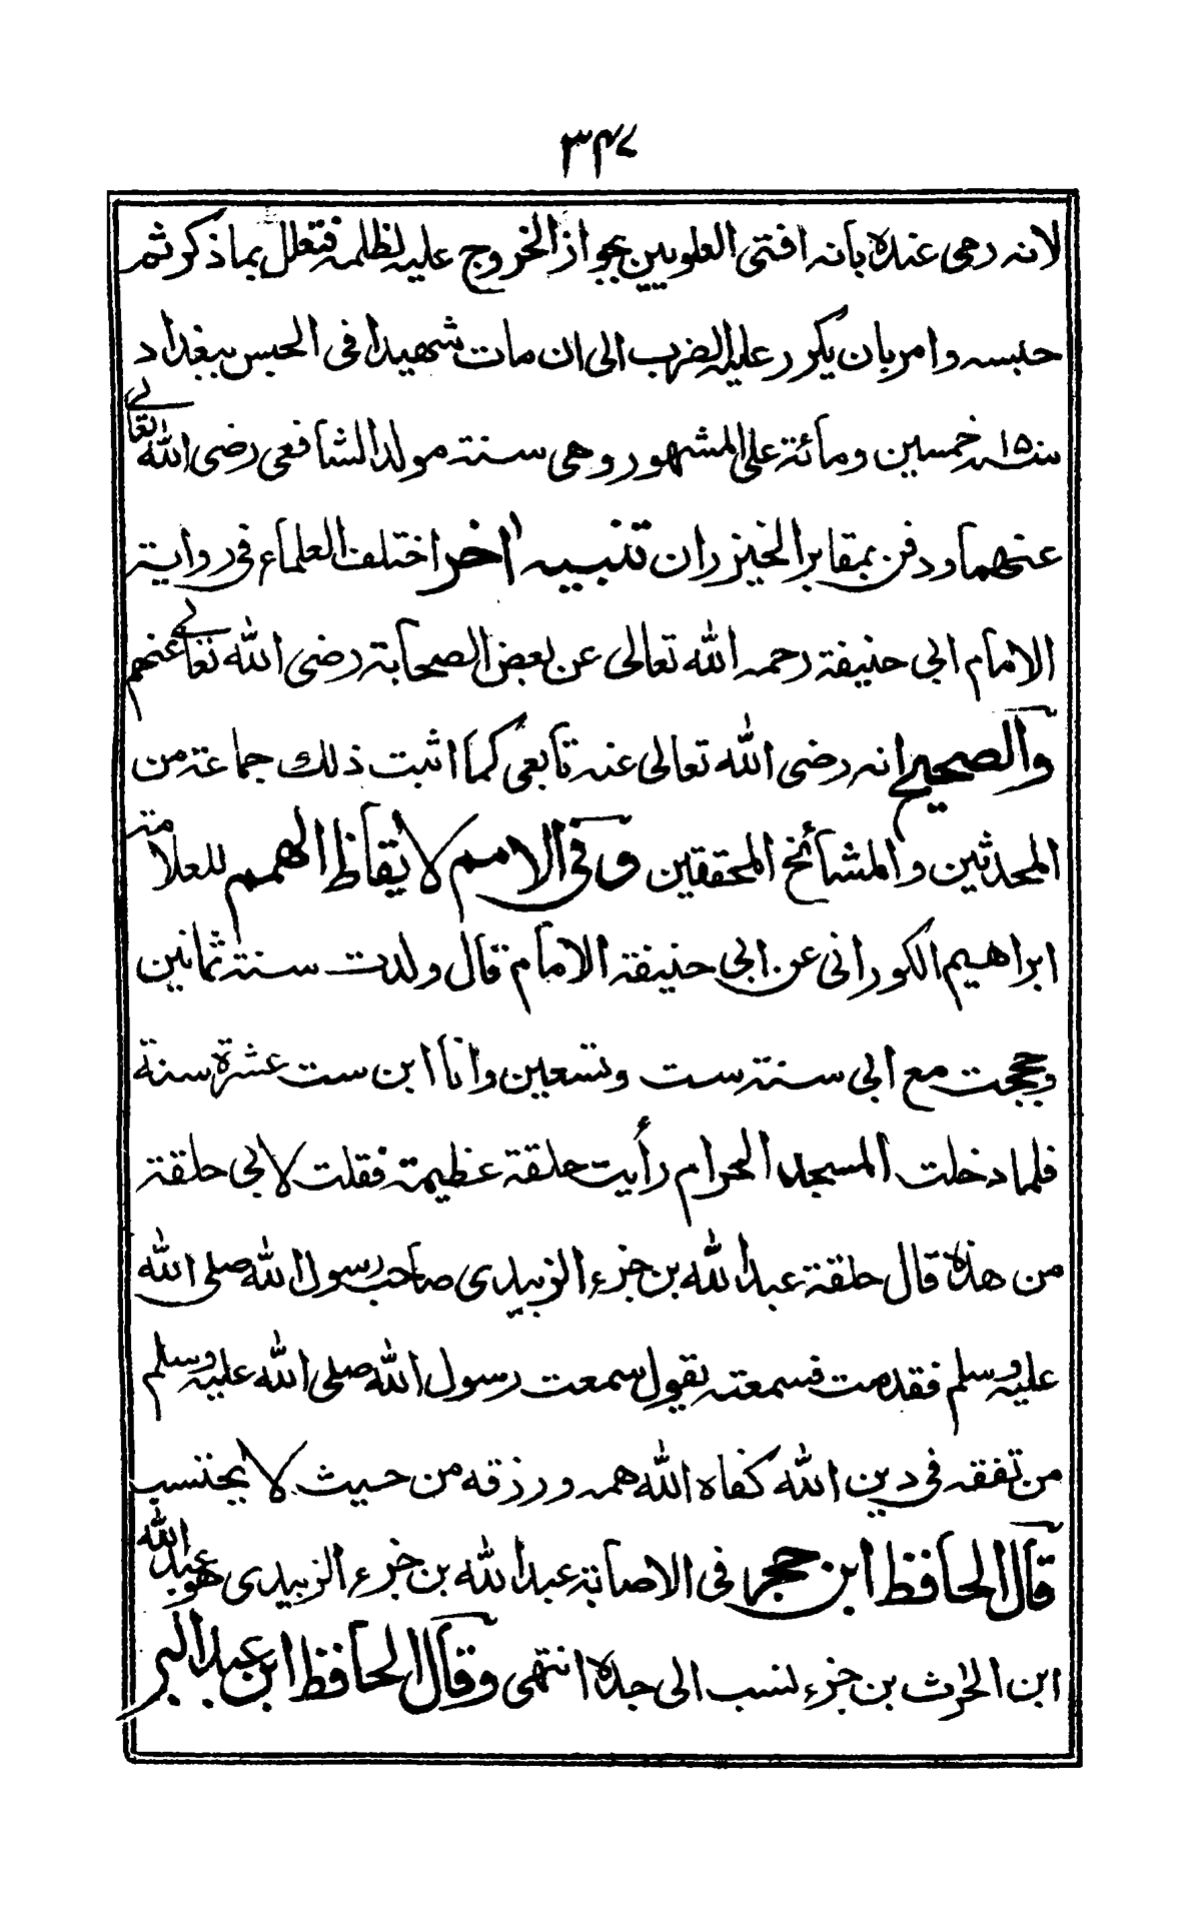 ٣٤٧
لانه رمى عنده بانه افتى العلويين بجواز الخروج عليه لظلمه فتعلل بماذكر ثم
حبسه وامر بان يكرر عليه الضرب الى ان مات شهيدا فى الحبس ببغداد
سنة ١٥٠ خمسين ومائة على المشهور وهى سنة مولد الشافعى رضى الله تعالى
عنهما ودفن بمقابر الخيزران تنبيه اخر اختلف العلماء فى رواية
الامام ابى حنيفة رحمه الله تعالى عن بعض الصحابة رضى الله تعالى عنهم
والصحيح انه رضى الله تعالى عنه تابعى كما اثبت ذلك جماعة من
المحدثين والمشائخ المحققين وفى الامم لايقاظ الهمم للعلامة
ابراهيم الكورانى عن ابى حنيفة الامام قال ولدت سنة ثمانين
وحججت مع ابى سنة ست وتسعين وانا ابن ست عشرة سنة
فلما دخلت المسجد الحرام رأيت حلقة عظيمة فقلت لابى حلقة
من هذه قال حلقة عبد الله بن جزء الزبيدى صاحب رسول الله صلى الله
عليه وسلم فقدمت فسمعته يقول سمعت رسول الله صلى الله عليه وسلم
من تفقه فى دين الله كفاه الله همه ورزقه من حيث لا يحتسب
قال الحافظ ابن حجر فى الاصابة عبد الله بن جزء الزبيدى هو عبد الله
ابن الحرث بن جزء لنسب الى جده انتهى وقال الحافظ ابن عبد البر